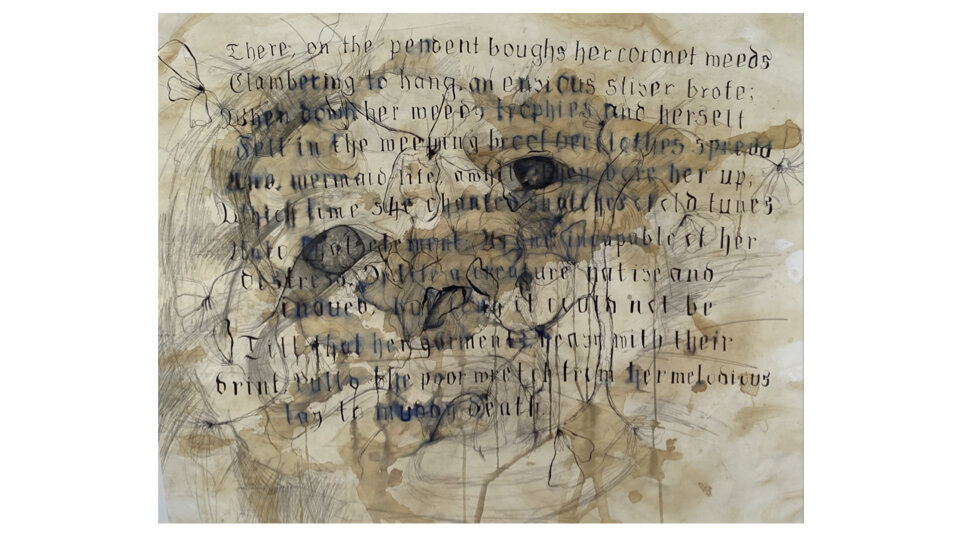 There, on the pendent boughs her coronet weeds
Clambering to hang, an envious sliver broke;
When down her weedy trophies and herself
Fell in the weeping brook her clothes spread
mermaid like, awhile they bore her up,
Which time she chanted snatches of old tunes
incapable of her
distress, Or like a creature native and
indued, but it could not be
Till that her garments heavy with their
drink, Pull'd the poor wretch from her melodious
lay to muddy death